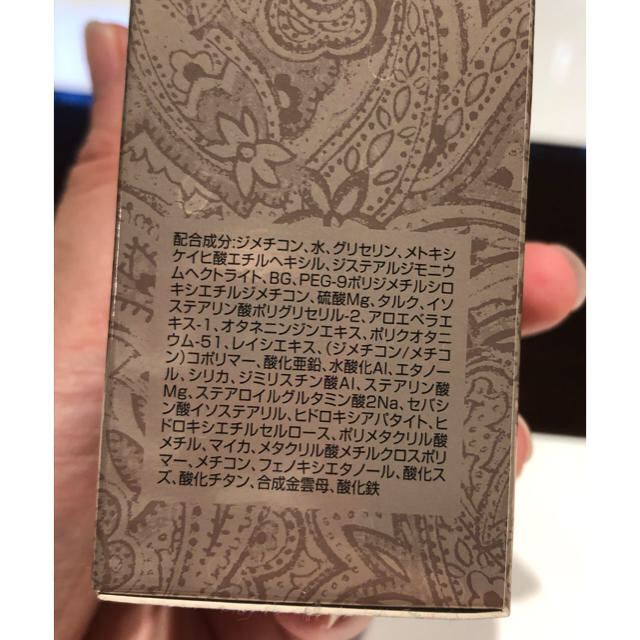 配合成分:ジメチコン、水、グリセリン、メトキシ
ケイヒ酸エチルヘキシル、ジステアルジモニウ
ムヘクトライト、BG、PEG-9ポリジメチルシロ
キシエチルジメチコン、硫酸Mg、タルク、イソ
ステアリン酸ポリグリセリル-2、アロエベラエ
キス-1、オタネニンジンエキス、ポリクオタニ
ウム-51、レイシエキス、(ジメチコン/メチコ
ン)コポリマー、酸化亜鉛、水酸化Al、エタノー
ル、シリカ、ジミリスチン酸Al、ステアリン酸
Mg、ステアロイルグルタミン酸2Na、セバシ
ン酸イソステアリル、ヒドロキシアパタイト、ヒ
ドロキシエチルセルロース、ポリメタクリル酸
メチル、マイカ、メタクリル酸メチルクロスポリ
マー、メチコン、フェノキシエタノール、酸化ス
ズ、酸化チタン、合成金雲母、酸化鉄